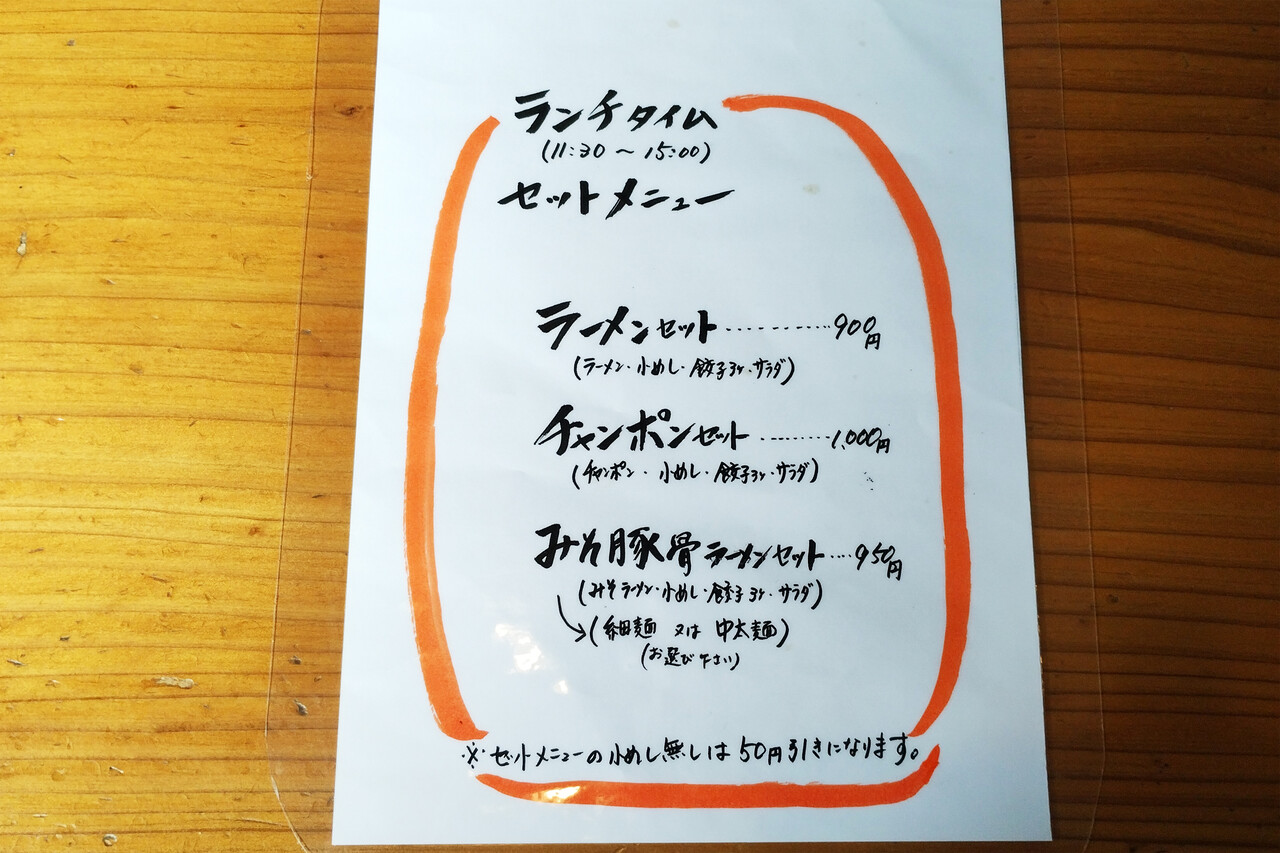 ランチタイム
(11:30～15:00)
セットメニュー
ラーメンセット‥‥‥‥‥900円
(ラーメン・小めし・餃子3ヶ・サラダ)
チャンポンセット‥‥‥‥1,000円
(チャンポン・小めし・餃子3ヶ・サラダ)
みそ豚骨ラーメンセット‥‥950円
(みそラーメン・小めし・餃子3ヶ・サラダ)
(細麺 又は 中太麺)
(お選び下さい)
※セットメニューの小めし無しは50円引きになります。